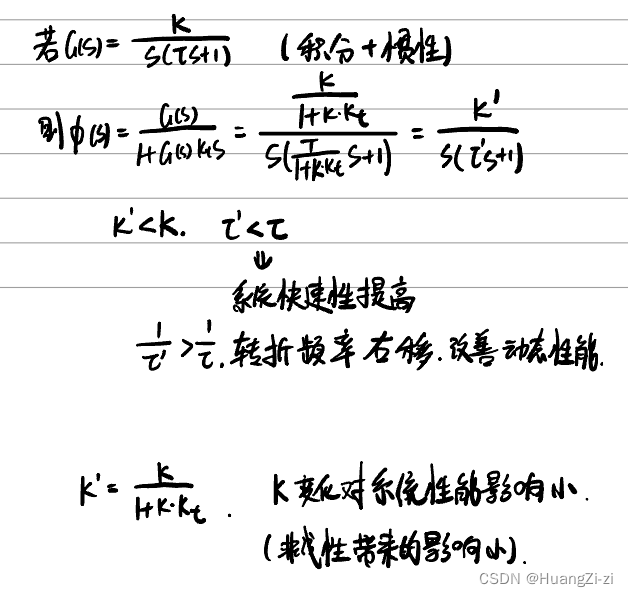 若G(s)= K/(s(τs+1)) (积分+惯性)
则φ(s)= G(s)/(1+G(s)Kts) = (K/(1+K·Kt))/(s(T/(1+K·Kt) s+1)) = K'/(s(τ's+1))
K'<K. τ'<τ
⇓
系统快速性提高
1/τ'>1/τ. 转折频率右移. 改善动态性能.
K'= K/(1+K·Kt) . K变化对系统性能影响小.
(非线性带来的影响小).
CSDN @HuangZi-zi